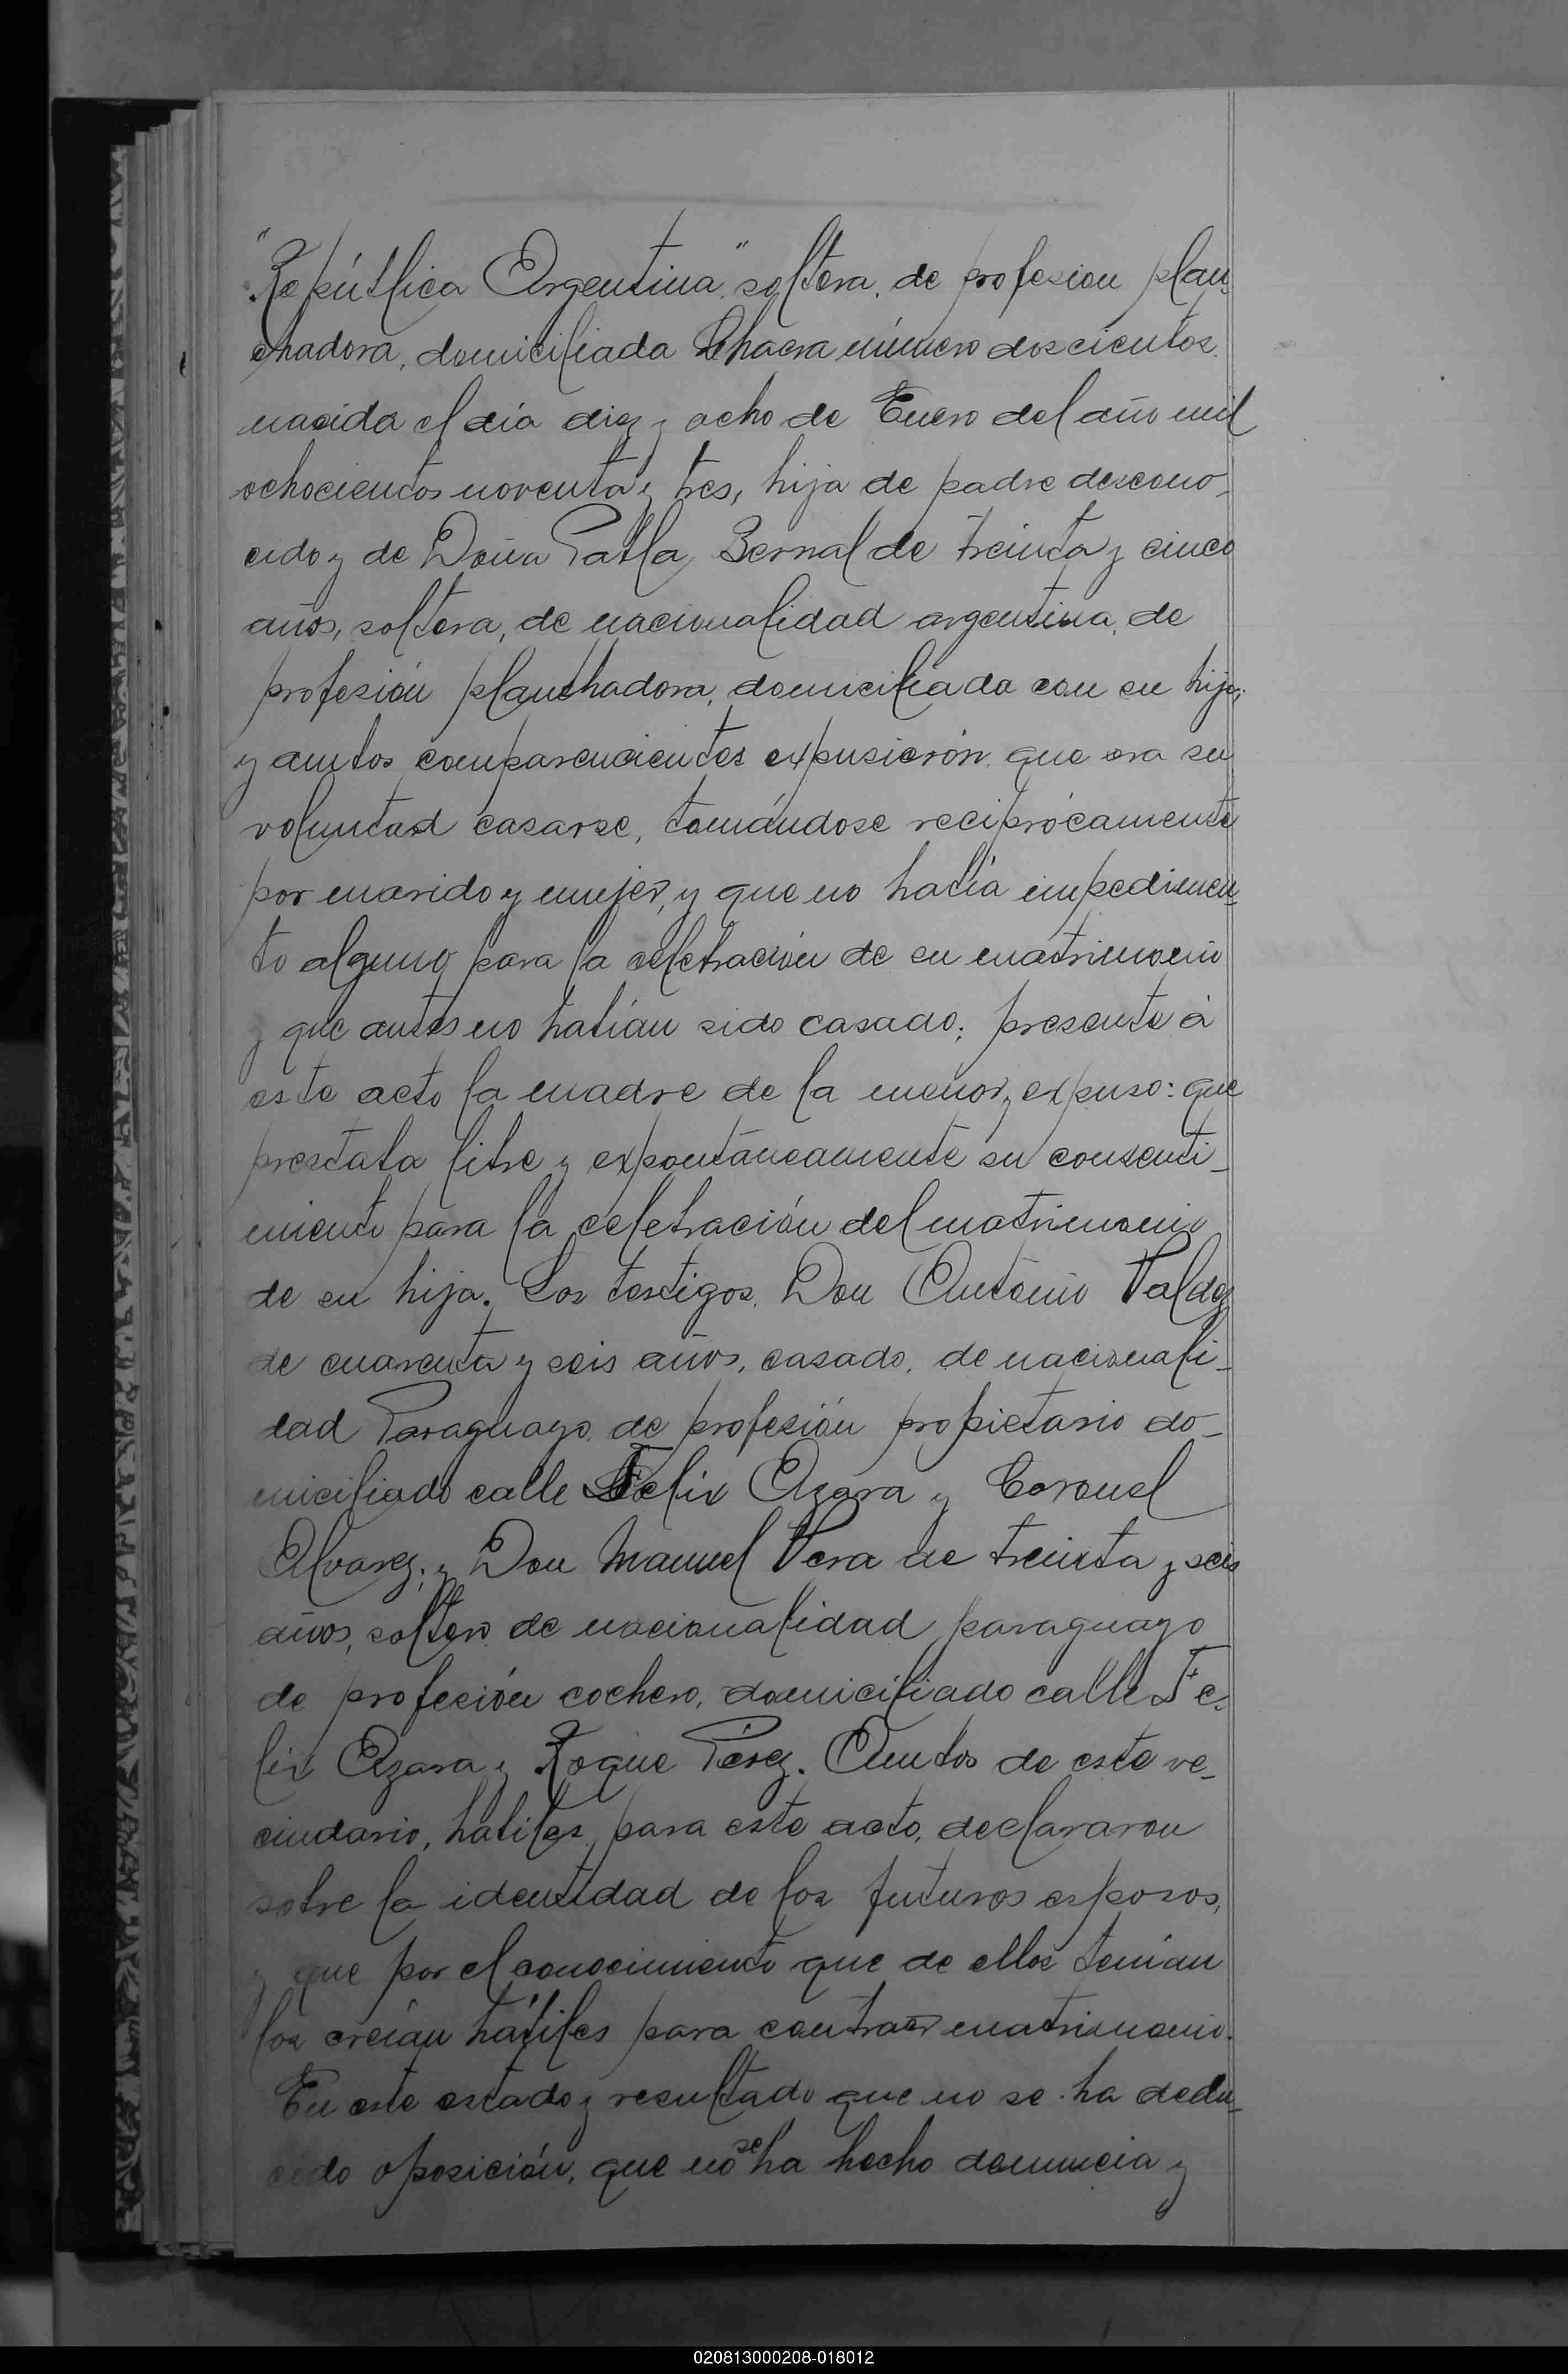 "República Argentina" soltera, de profesion plan-
chadora, domiciliada Chacra número doscientos,
nacida el día diez y ocho de Enero del año mil
ochocientos noventa y tres, hija de padre descono-
cido y de Doña Pabla Bernal de treinta y cinco
años, soltera, de nacionalidad argentina, de
profesión planchadora, domiciliada con su hija;
y ambos comparencientes expusierón que era su
voluntad casarse, tomándose reciprócamente
por marido y mujer, y que no había impedimen-
to alguno para la celebración de su matrimonio
y que antes no habían sido casado; presente á
este acto la madre de la menor, expuso: que
prestaba libre y expontáneamente su consenti-
miento para la celebración del matrimonio
de su hija. Los testigos, Don António Valdez
de cuarenta y seis años, casado, de nacionali-
dad Paraguayo, de profesión propietario do-
miciliado calle Felix Azara y Coronel
Alvarez; y Don Manuel Vera de treinta y seis
años, soltero, de nacionalidad paraguayo
de profesión cochero, domiciliado calle Fe-
lix Azara y Roque Pérez. Ambos de este ve-
cindario, habiles para este acto, declararon
sobre la identidad de los futuros esposos,
y que por el conocimiento que de ellos tenían
los creían hábiles para contraer matrimonio.
En este estado y resultado que no se ha dedu-
cido oposición, que no se ha hecho denuncia y
020813000208-018012